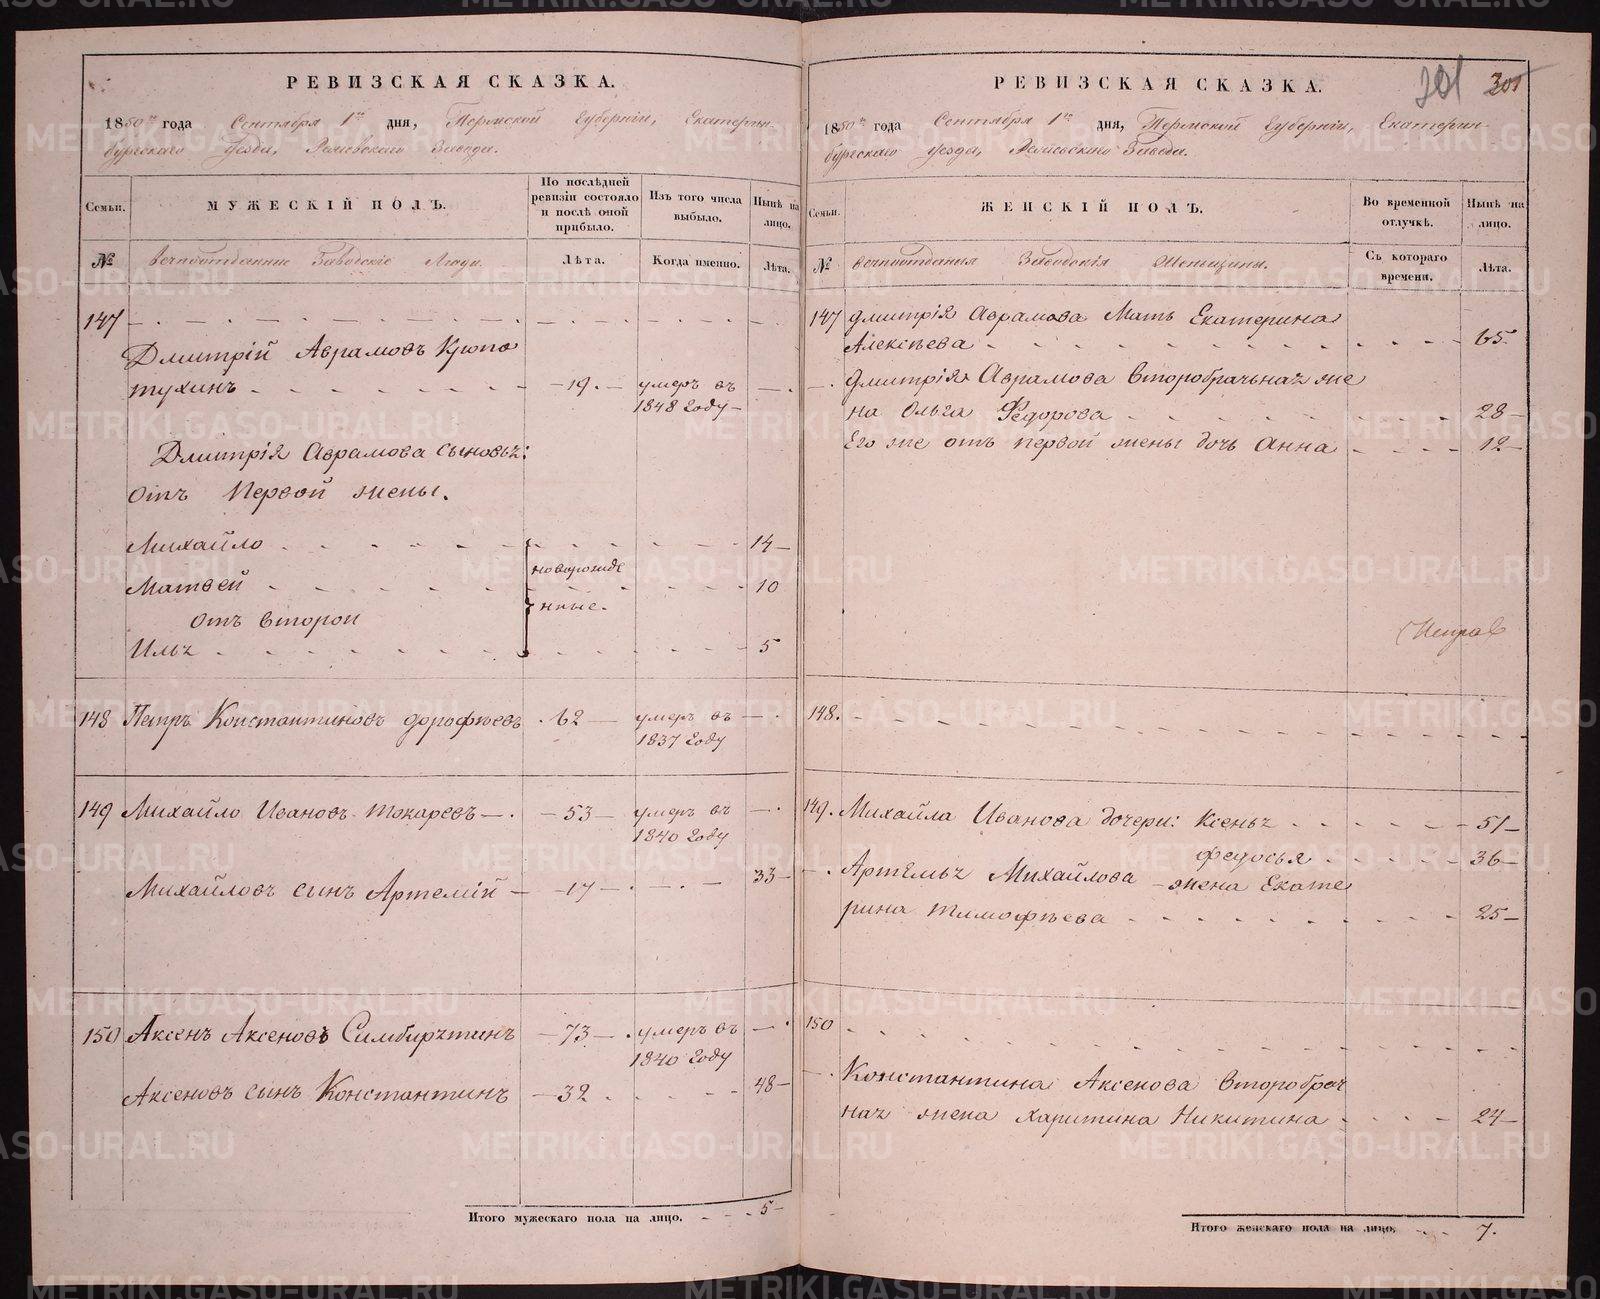 РЕВИЗСКАЯ СКАЗКА.
1850го года Сентября 1го дня, Пермской Губернии, Екатерин-
бургскаго Уезда, Режевскаго Завода.
Семьи. МУЖЕСКІЙ ПОЛЪ. По послѣдней ревизіи состояло и послѣ оной прибыло. Изъ того числа выбыло. Нынѣ на лицо.
№ вечноотданные Заводскіе Люди. Лѣта. Когда именно. Лѣта.
147
Дмитрій Аврамовъ Кропо
тухинъ - 19. - умеръ въ
1848 Году -
Дмитрія Аврамова сыновья:
отъ первой жены.
Михайло 14
новорожде
Матвей 10
нные.
отъ второй
Илья 5
148 Петръ Константиновъ дорофѣевъ 62 умеръ въ
1837 Году
149 Михайло Ивановъ Токаревъ 53 умеръ въ
1840 Году
Михайловъ сынъ Артемій 17 33
150 Аксенъ Аксеновъ Симбирятинъ 73 умеръ въ
1840 Году
Аксеновъ сынъ Константинъ 32 48
Итого мужескаго пола на лицо. 5
РЕВИЗСКАЯ СКАЗКА.
301 301
1850го года Сентября 1го дня, Пермской Губерніи, Екатерин-
бургскаго Уезда, Режевскаго Завода.
Семьи. ЖЕНСКІЙ ПОЛЪ. Во временной отлучкѣ. Нынѣ на лицо.
№ вечноотданыя Заводскія Женщины. Съ котораго времени. Лѣта.
147 дмитрія Аврамова Мать Екатерина
Алексѣева 65
дмитрія Аврамова второбрачная же
на Ольга Федорова 28
Его же отъ первой жены дочь Анна 12
148.
149. Михайла Иванова дочери: Ксенья 51
федосья 36
Артемья Михайлова жена Екате
рина тимофѣева 25
150
Константина Аксенова второбрач
ная жена харитина Никитина 24
Итого женскаго пола на лицо. 7.
METRIKI.GASO-URAL.RU